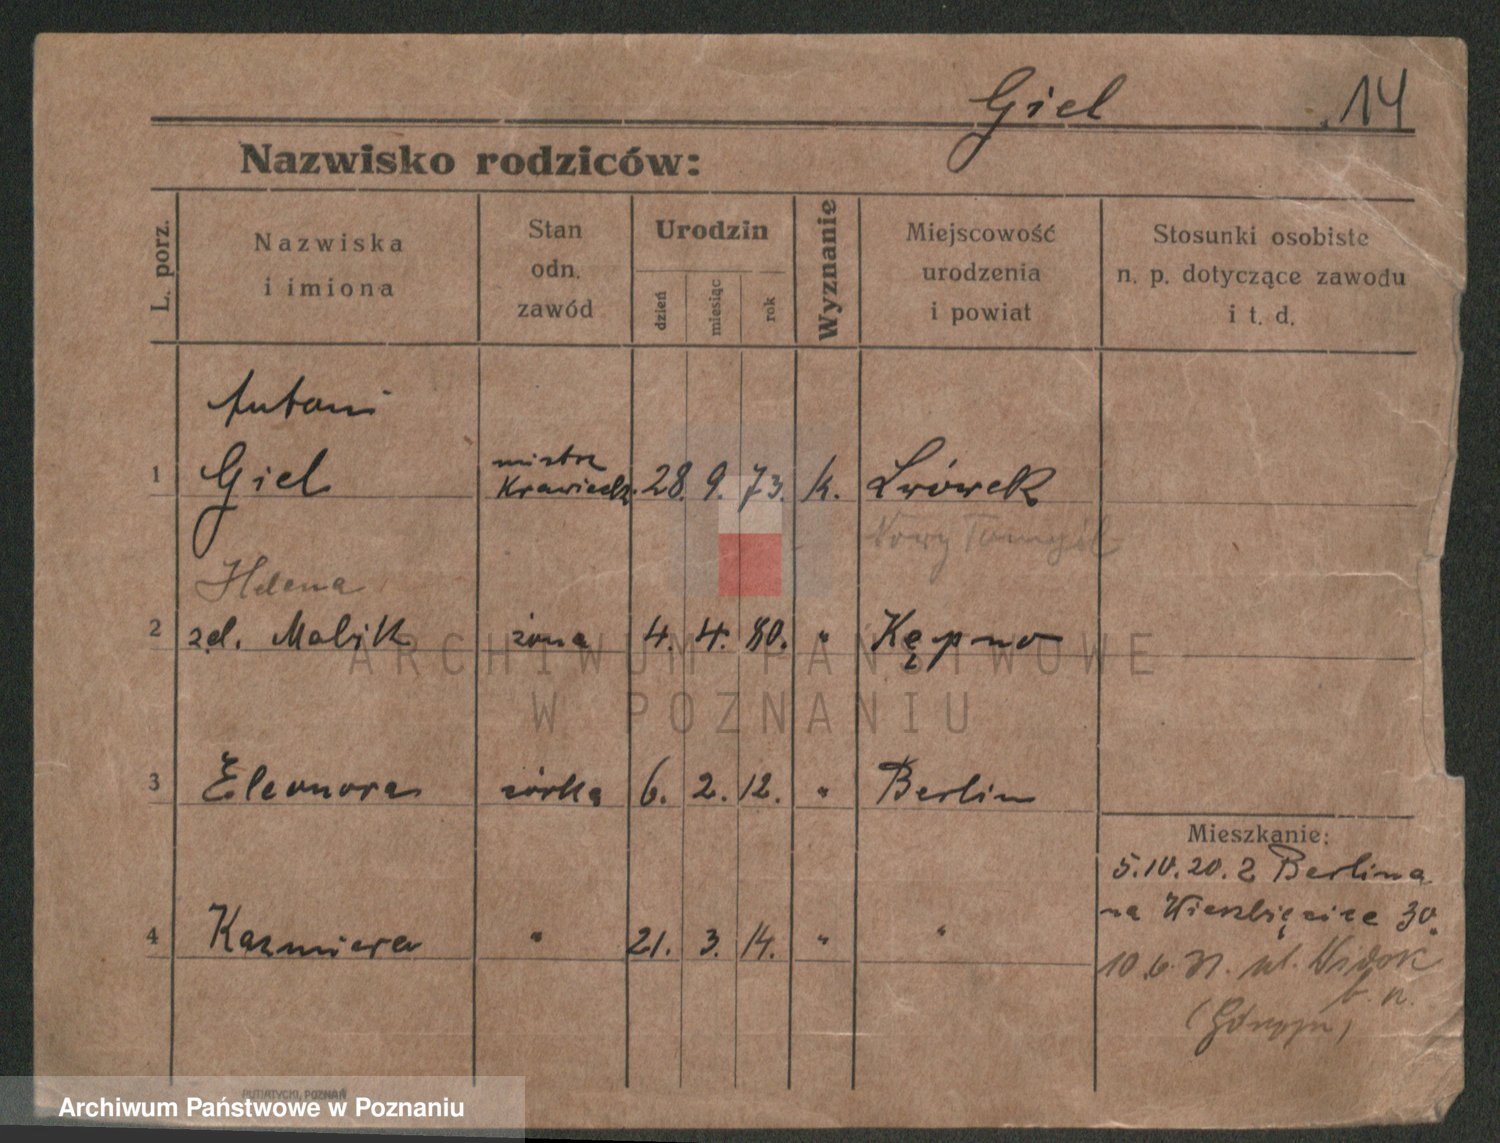 Giel 14
Nazwisko rodziców:
L. porz.
Nazwiska
i imiona
Stan
odn.
zawód
Urodzin
dzień
miesiąc
rok
Wyznanie
Miejscowość
urodzenia
i powiat
Stosunki osobiste
n. p. dotyczące zawodu
i t. d.
Antoni
1 Giel mistrz krawieck. 28. 9. 73. k. Lwówek
Nowy Tomyśl
Helena
2 zd. Malik żona 4. 4. 80. " Kępno
3 Eleonora córka 6. 2. 12. " Berlin
Mieszkanie:
5.10.20. z Berlina
na Wierzbięcice 30.
4 Kazmiera " 21. 3. 14. " "
10.6.31. ul. Widok
b. n.
ARCHIWUM PAŃSTWOWE
W POZNANIU
PUTIATYCKI, POZNAŃ
Archiwum Państwowe w Poznaniu